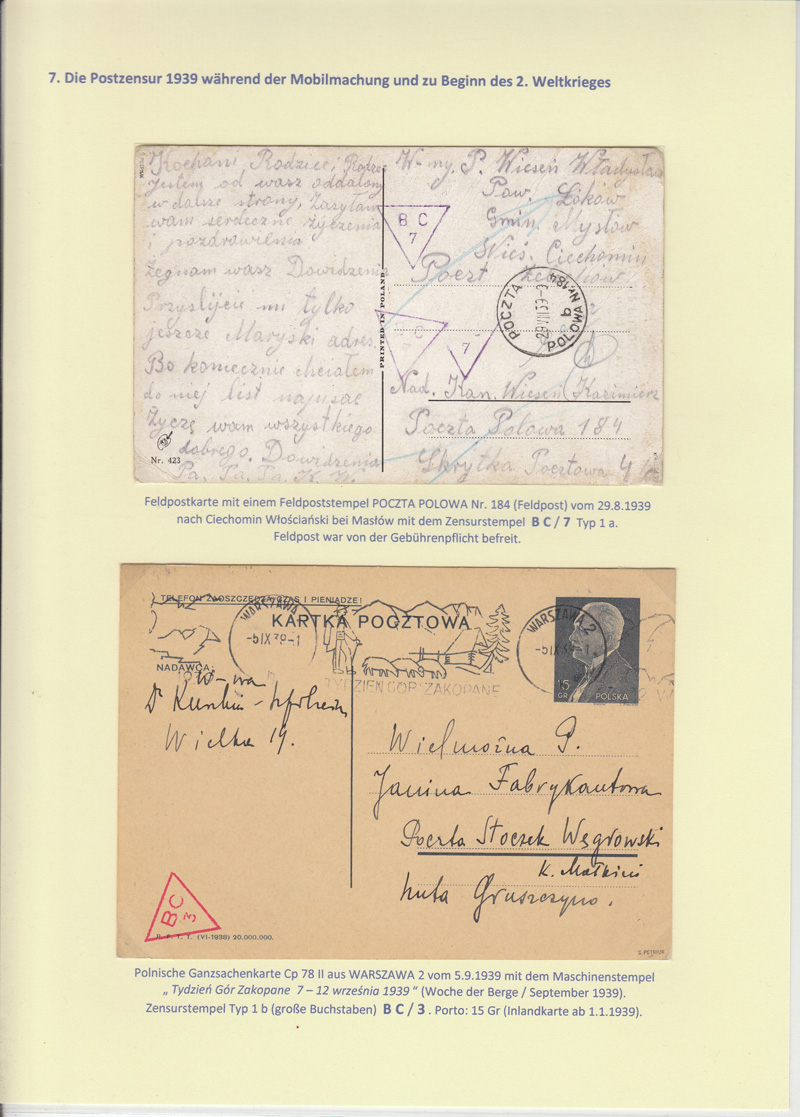 7. Die Postzensur 1939 während der Mobilmachung und zu Beginn des 2. Weltkrieges
Kochani Rodzice,
Jestem od wasz oddalony
w dalsze strony, Zasyłam
wam serdeczne życzenia
i pozdrowienia
Żegnam wasz Dowidzenia
Przyslijcie mi tylko
jeszcze Maryski adres.
Bo koniecznie chciałem
do niej list napisac
Życzę wam wszystkiego
dobrego. Dowidzenia
Pa. Pa. Pa. K. W.
Nr. 423
PRINTED IN POLAND
W-ny. P. Wiesen Władysław
Pow. Łuków
Gmin. Mysłow
Wieś. Ciechomin
Poczt
B C
7
POCZTA POLOWA Nr. 184
29 VIII 39
b
C
7
Nad. Kan. Wiesen Kazimierz
Poczta Polowa 184
Skrytka Pocztowa 4
Feldpostkarte mit einem Feldpoststempel POCZTA POLOWA Nr. 184 (Feldpost) vom 29.8.1939
nach Ciechomin Włościański bei Masłów mit dem Zensurstempel B C / 7 Typ 1 a.
Feldpost war von der Gebührenpflicht befreit.
TELEFON ZAOSZCZĘDZA CZAS I PIENIĄDZE!
KARTKA POCZTOWA
WARSZAWA
-5 IX 39-1
WARSZAWA 2
-5 IX 39-1
TYDZIEŃ GÓR ZAKOPANE
15
GR
POLSKA
NADAWCA:
W-wa
Wielka 19.
Wielmożna P.
Janina Fabrykantowa
Poczta Stoczek Węgrowski
k. Małkini
huta Gruszczyno.
B C
3
P. P. T. T. (VI-1938) 20.000.000.
Polnische Ganzsachenkarte Cp 78 II aus WARSZAWA 2 vom 5.9.1939 mit dem Maschinenstempel
„ Tydzień Gór Zakopane 7 – 12 września 1939 " (Woche der Berge / September 1939).
Zensurstempel Typ 1 b (große Buchstaben) B C / 3 . Porto: 15 Gr (Inlandkarte ab 1.1.1939).